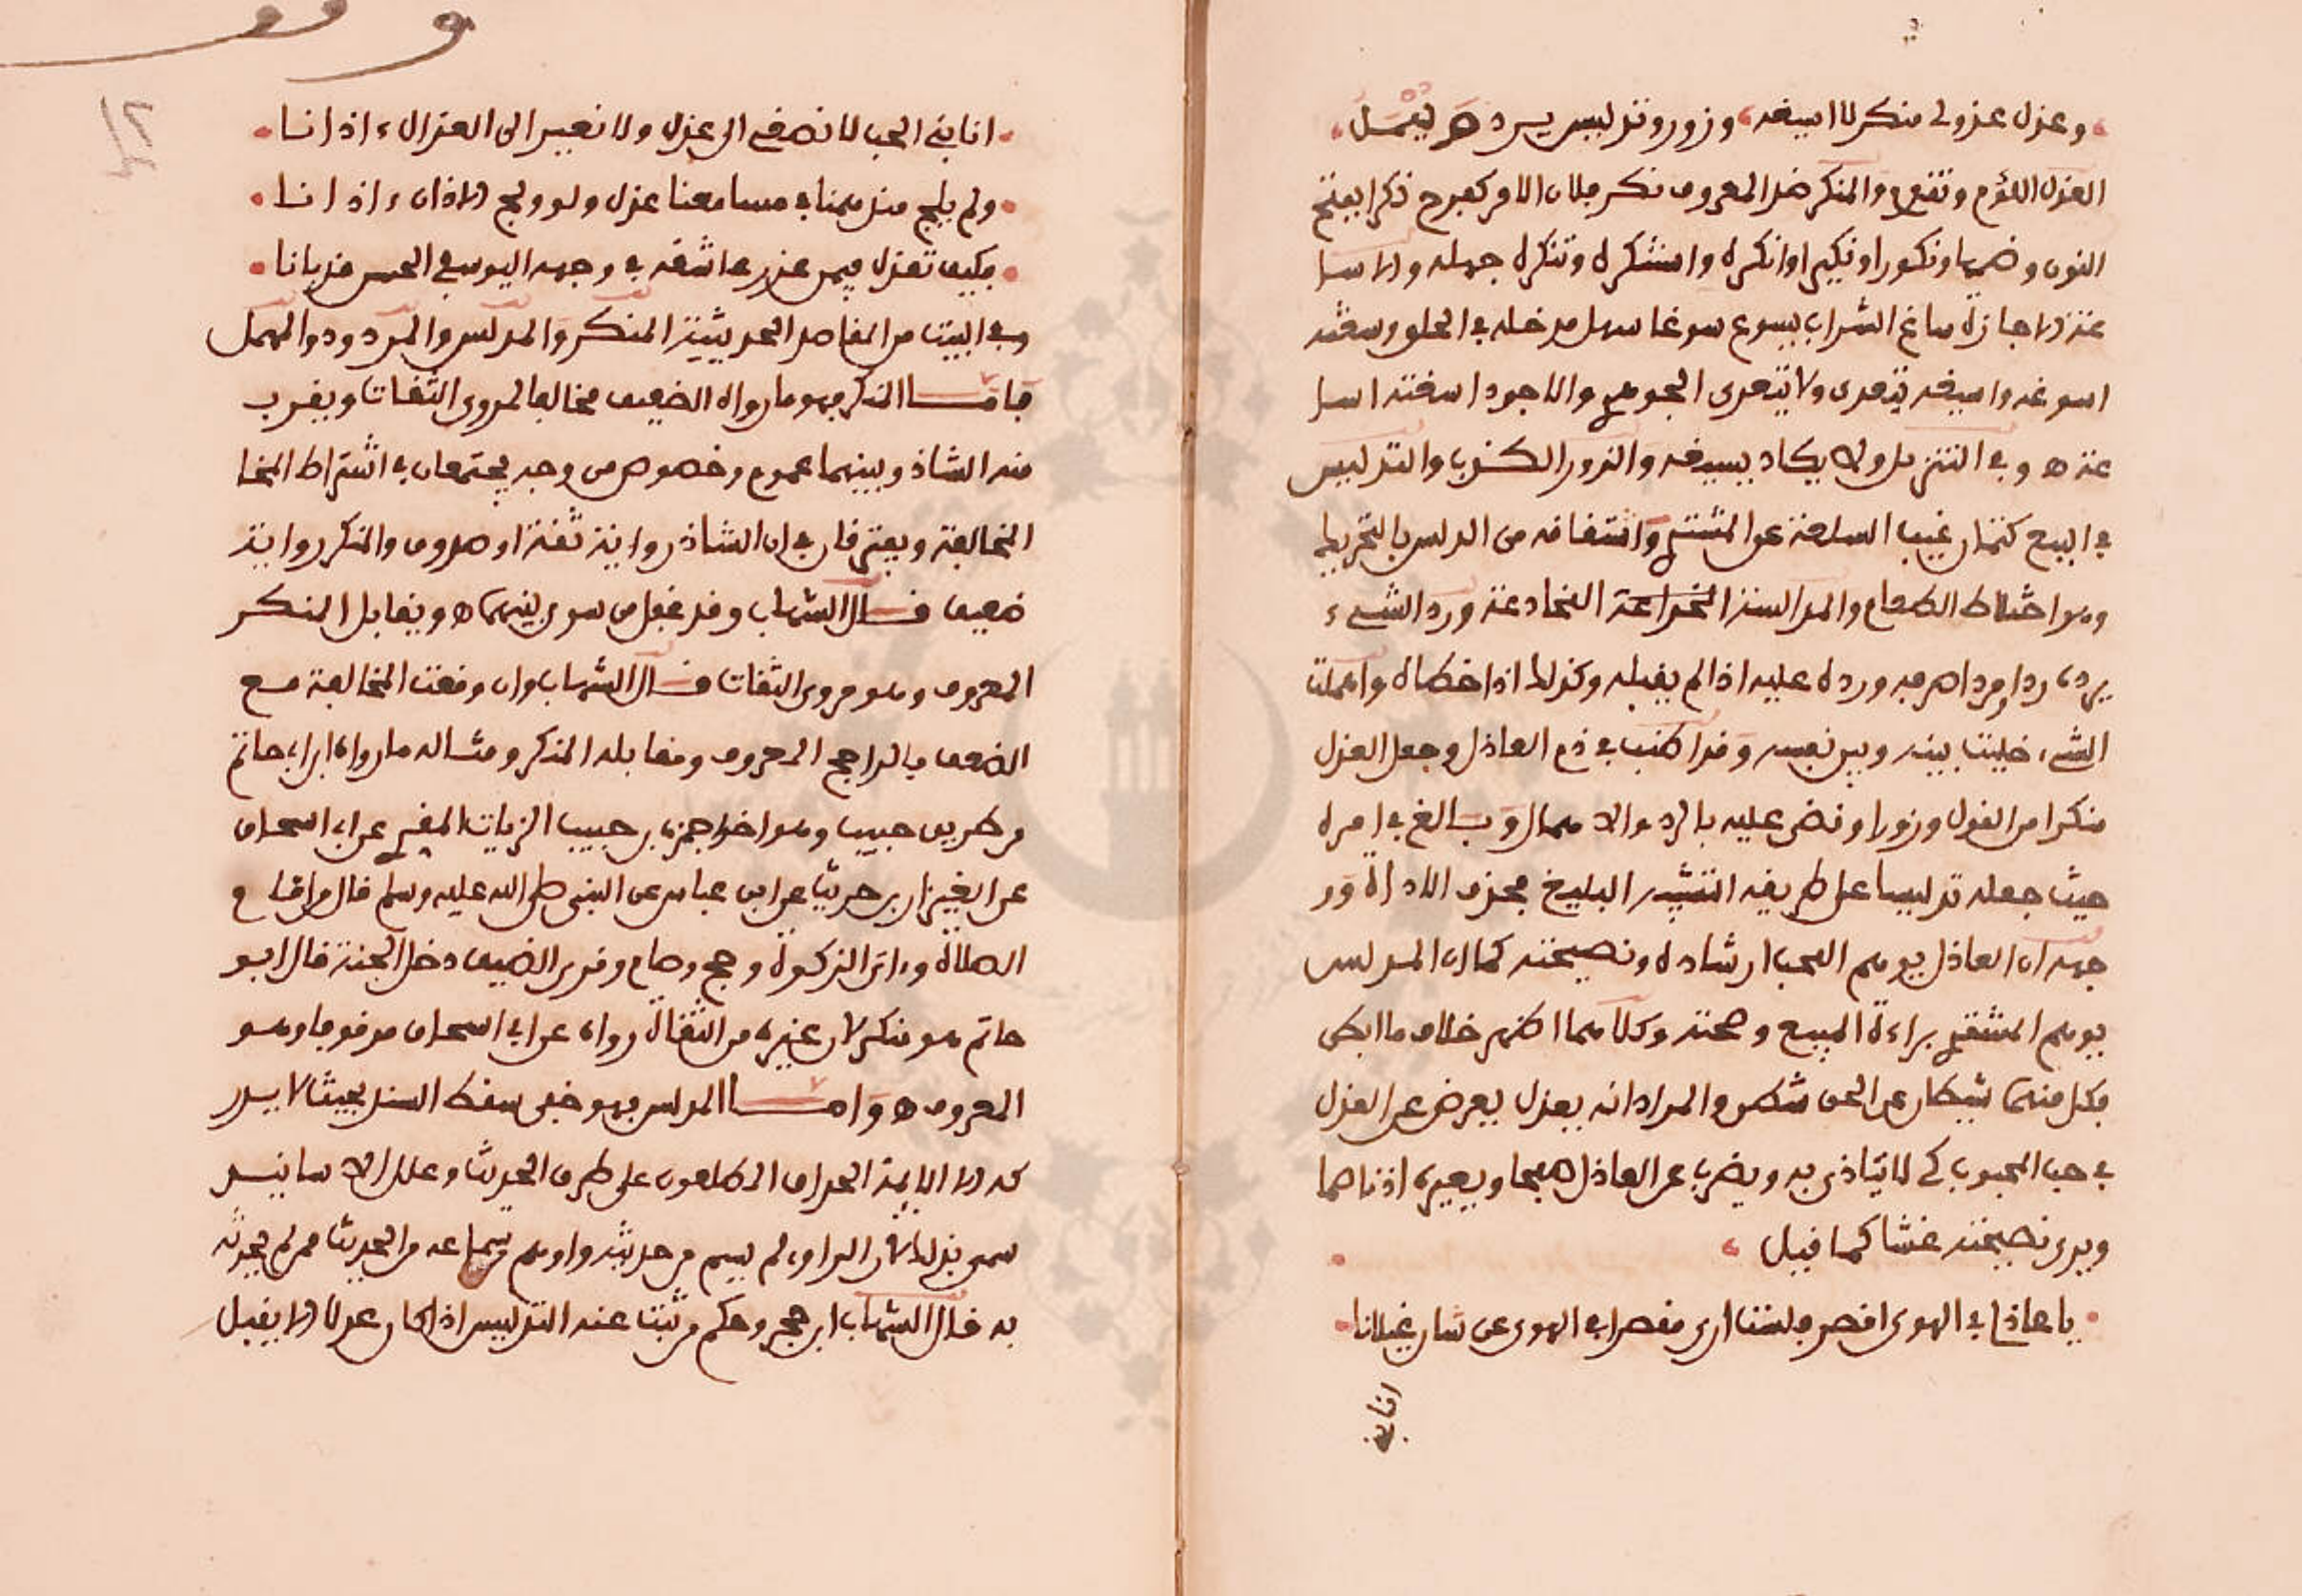 وعذل عذولي منكر لا اسيغه وزور وتدليس يرد ويهمل
العذل اللؤم وتقدم والمنكر ضد المعروف نكر فلان الامر كفرح نكرا بفتح
النون وضمها ونكورا ونكيرا وانكره واستنكره وتنكره جهله والاسا
غة الاجازة ساغ الشراب يسوغ سوغا سهل مدخله في الحلق وسغته
اسوغه واسيغه يتعدى ولا يتعدى الجوهري والاجود اسغته اسا
غة ه وفي التنزيل ولا يكاد يسيغه والزور الكذب والتدليس
في البيع كتمان عيب السلعة عن المشتري واشتقاقه من الدلس بالتحريك
وهو اختلاط الظلام والمدالسة المخادعة ورد الشيء
يرده ردا ومردا صرفه ورده عليه اذا لم يقبله وكذلك اذا خطاه واهملت
الشيء خليت بينه وبين نفسه وقد اطنب في ذم العاذل وجعل العذل
منكرا من القول وزورا وقضى عليه بالرد والاهمال وبالغ في امره
حيث جعله تدليسا على طريقه التشبيه البليغ بحذف الاداة وو
جهه ان العاذل يوهم المحب ارشاده ونصيحته كما ان المدلس
يوهم المشتري براءة المبيع وصحته وكلاهما اظهر خلاف ما ابطن
فكل منهما شيطان عن الحق شطن والمراد انه يعذل يعرض عن العذل
في حب المحبوب كي لا يتاذى به ويضرب عن العاذل صفحا ويعيره اذنا صما
ويرى نصيحته غشا كما قيل
يا عاذلي في الهوى اقصر فلست ارى مقصرا في الهوى عن شان غيلانا
انا في
انا في الحب لا نصغي الى عذل ولا نعير الى العذال ءاذانا
ولم يلج منذ همنا في مسامعنا عذل ولو ولج الاذان ءاذانا
فكيف تعذل فيمن عذر عاشقه في وجهه اليوسفي الحسن قد بانا
وفي البيت من المقاصد الحديثية المنكر والمدلس والمردود والمهمل
فاما المنكر فهو ما رواه الضعيف مخالفا لمروي الثقات ويقرب
منه الشاذ وبينهما عموم وخصوص من وجه يجتمعان في اشتراط المخا
المخالفة ويفترقان في ان الشاذ رواية ثقة او صدوق والمنكر رواية
ضعيف قال الشهاب وقد غفل من سوى بينهما ه ويقابل المنكر
المعروف وهو مروي الثقات قال الشهاب وان وقعت المخالفة مع
الضعف فالراجح المعروف ومقابله المنكر ومثاله ما رواه ابن ابي حاتم
من طريق حبيب وهو اخو حمزة بن حبيب الزيات المقري عن ابي اسحاق
عن العيزار بن حريث عن ابن عباس عن النبي صلى الله عليه وسلم قال من اقام
الصلاة وءاتى الزكوة وحج وصام وقرى الضيف دخل الجنة قال ابو
حاتم هو منكر لان غيره من الثقات رواه عن ابي اسحاق موقوفا وهو
المعروف ه واما المدلس فهو خفي سقط السند بحيث لا يدر
كه الا الايمة الحذاق المطلعون على طرق الحديث وعلل الاسانيد
سمي بذلك لان الراوي لم يسم من حدثه واوهم سماعه من الحديث ممن لم يحدثه
به قال الشهاب ابن حجر وحكم من ثبت عنه التدليس اذا كان عدلا الا يقبل